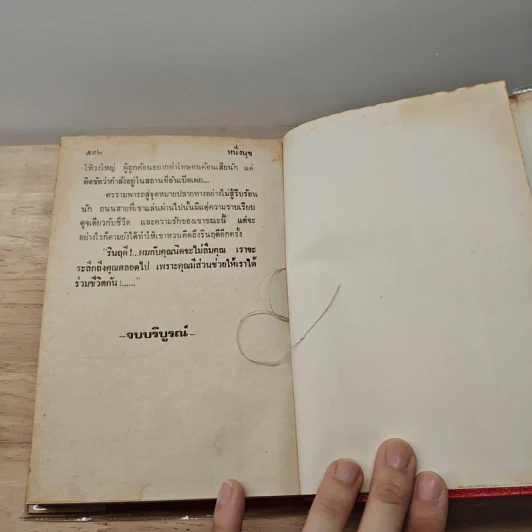 ๕๙๒ หนึ่งนุช
ให้วงใหญ่ ผู้ถูกค้อนอยากทำโทษคนค้อนเสียนัก แต่
คิดขัดว่ากำลังอยู่ในสถานที่อันเปิดเผย...
ศรรามพารถสู่จุดหมายปลายทางอย่างไม่สู้รีบร้อน
นัก ถนนสายที่เขาแล่นผ่านไปนั้นมีแต่ความราบเรียบ
ดุจเดียวกับชีวิต และความรักของเขาขณะนี้ แต่จะ
อย่างไรก็ตามยังได้ทำให้เขาหวนคิดถึงรินฤดีอีกครั้ง
"รินฤดี!...ผมกับคุณนิดจะไม่ลืมคุณ เราจะ
ระลึกถึงคุณตลอดไป เพราะคุณมีส่วนช่วยให้เราได้
ร่วมชีวิตกัน!......"
–จบบริบูรณ์–